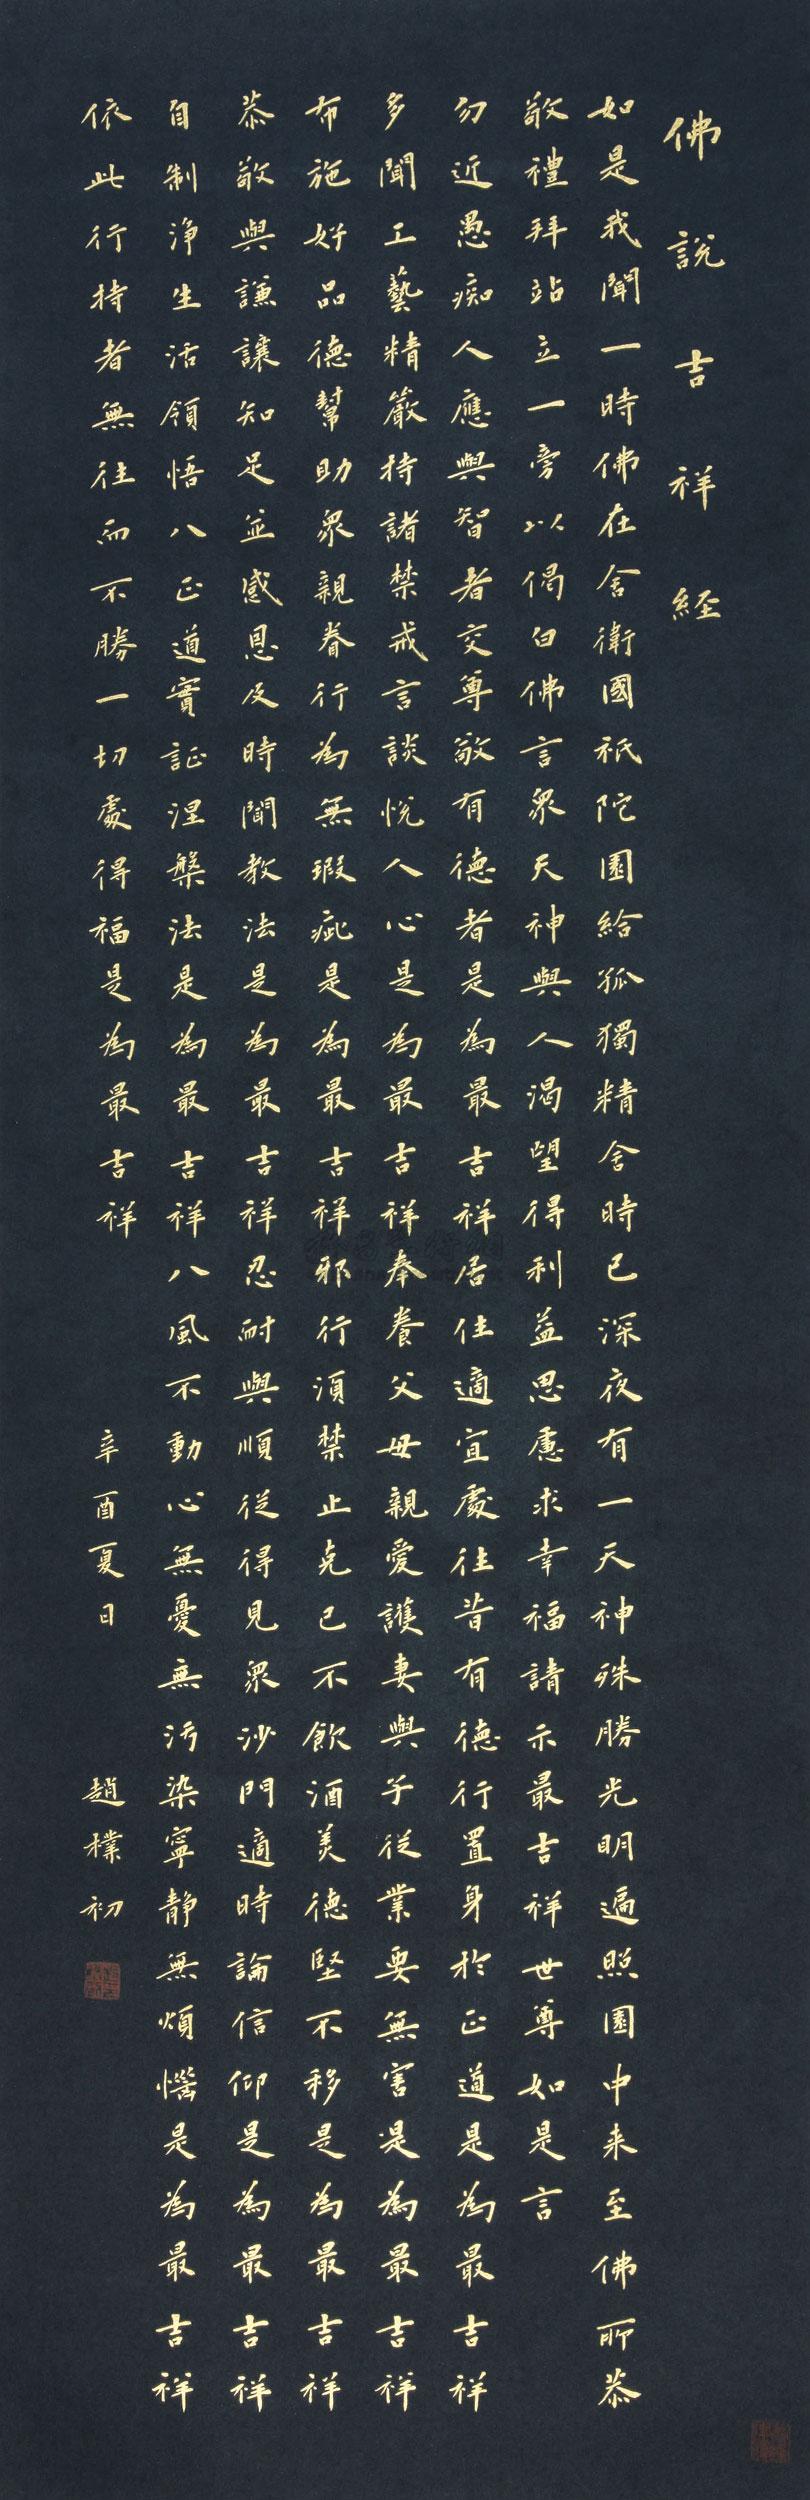 佛說吉祥経
如是我聞一時佛在舍衛國祇陀園給孤獨精舍時已深夜有一天神殊勝光明遍照園中来至佛所恭
敬禮拜站立一旁以偈白佛言衆天神與人渴望得利益思慮求幸福請示最吉祥世尊如是言
勿近愚痴人應與智者交尊敬有德者是為最吉祥居住適宜處往昔有德行置身於正道是為最吉祥
多聞工藝精嚴持諸禁戒言談悅人心是為最吉祥奉養父母親愛護妻與子從業要無害是為最吉祥
布施好品德幫助衆親眷行為無瑕疵是為最吉祥邪行須禁止克己不飲酒美德堅不移是為最吉祥
恭敬與謙讓知足並感恩及時聞教法是為最吉祥忍耐與順從得見衆沙門適時論信仰是為最吉祥
自制淨生活領悟八正道實証涅槃法是為最吉祥八風不動心無憂無污染寧靜無煩惱是為最吉祥
依此行持者無往而不勝一切處得福是為最吉祥
辛酉夏日
趙樸初